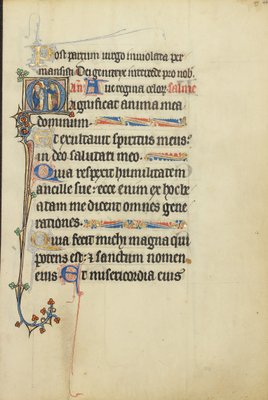 Post partum virgo inviolata per
mansisti Dei genitrix intercede pro nob.
an Ave regina celor
Magnificat anima mea
dominum.
Et exultavit spiritus meus:
in deo salutari meo.
Quia respexit humilitatem
ancille sue: ecce enim ex hoc be
atam me dicent omnes gene
rationes.
Quia fecit michi magna qui
potens est: & sanctum nomen
eius. Et misericordia eius